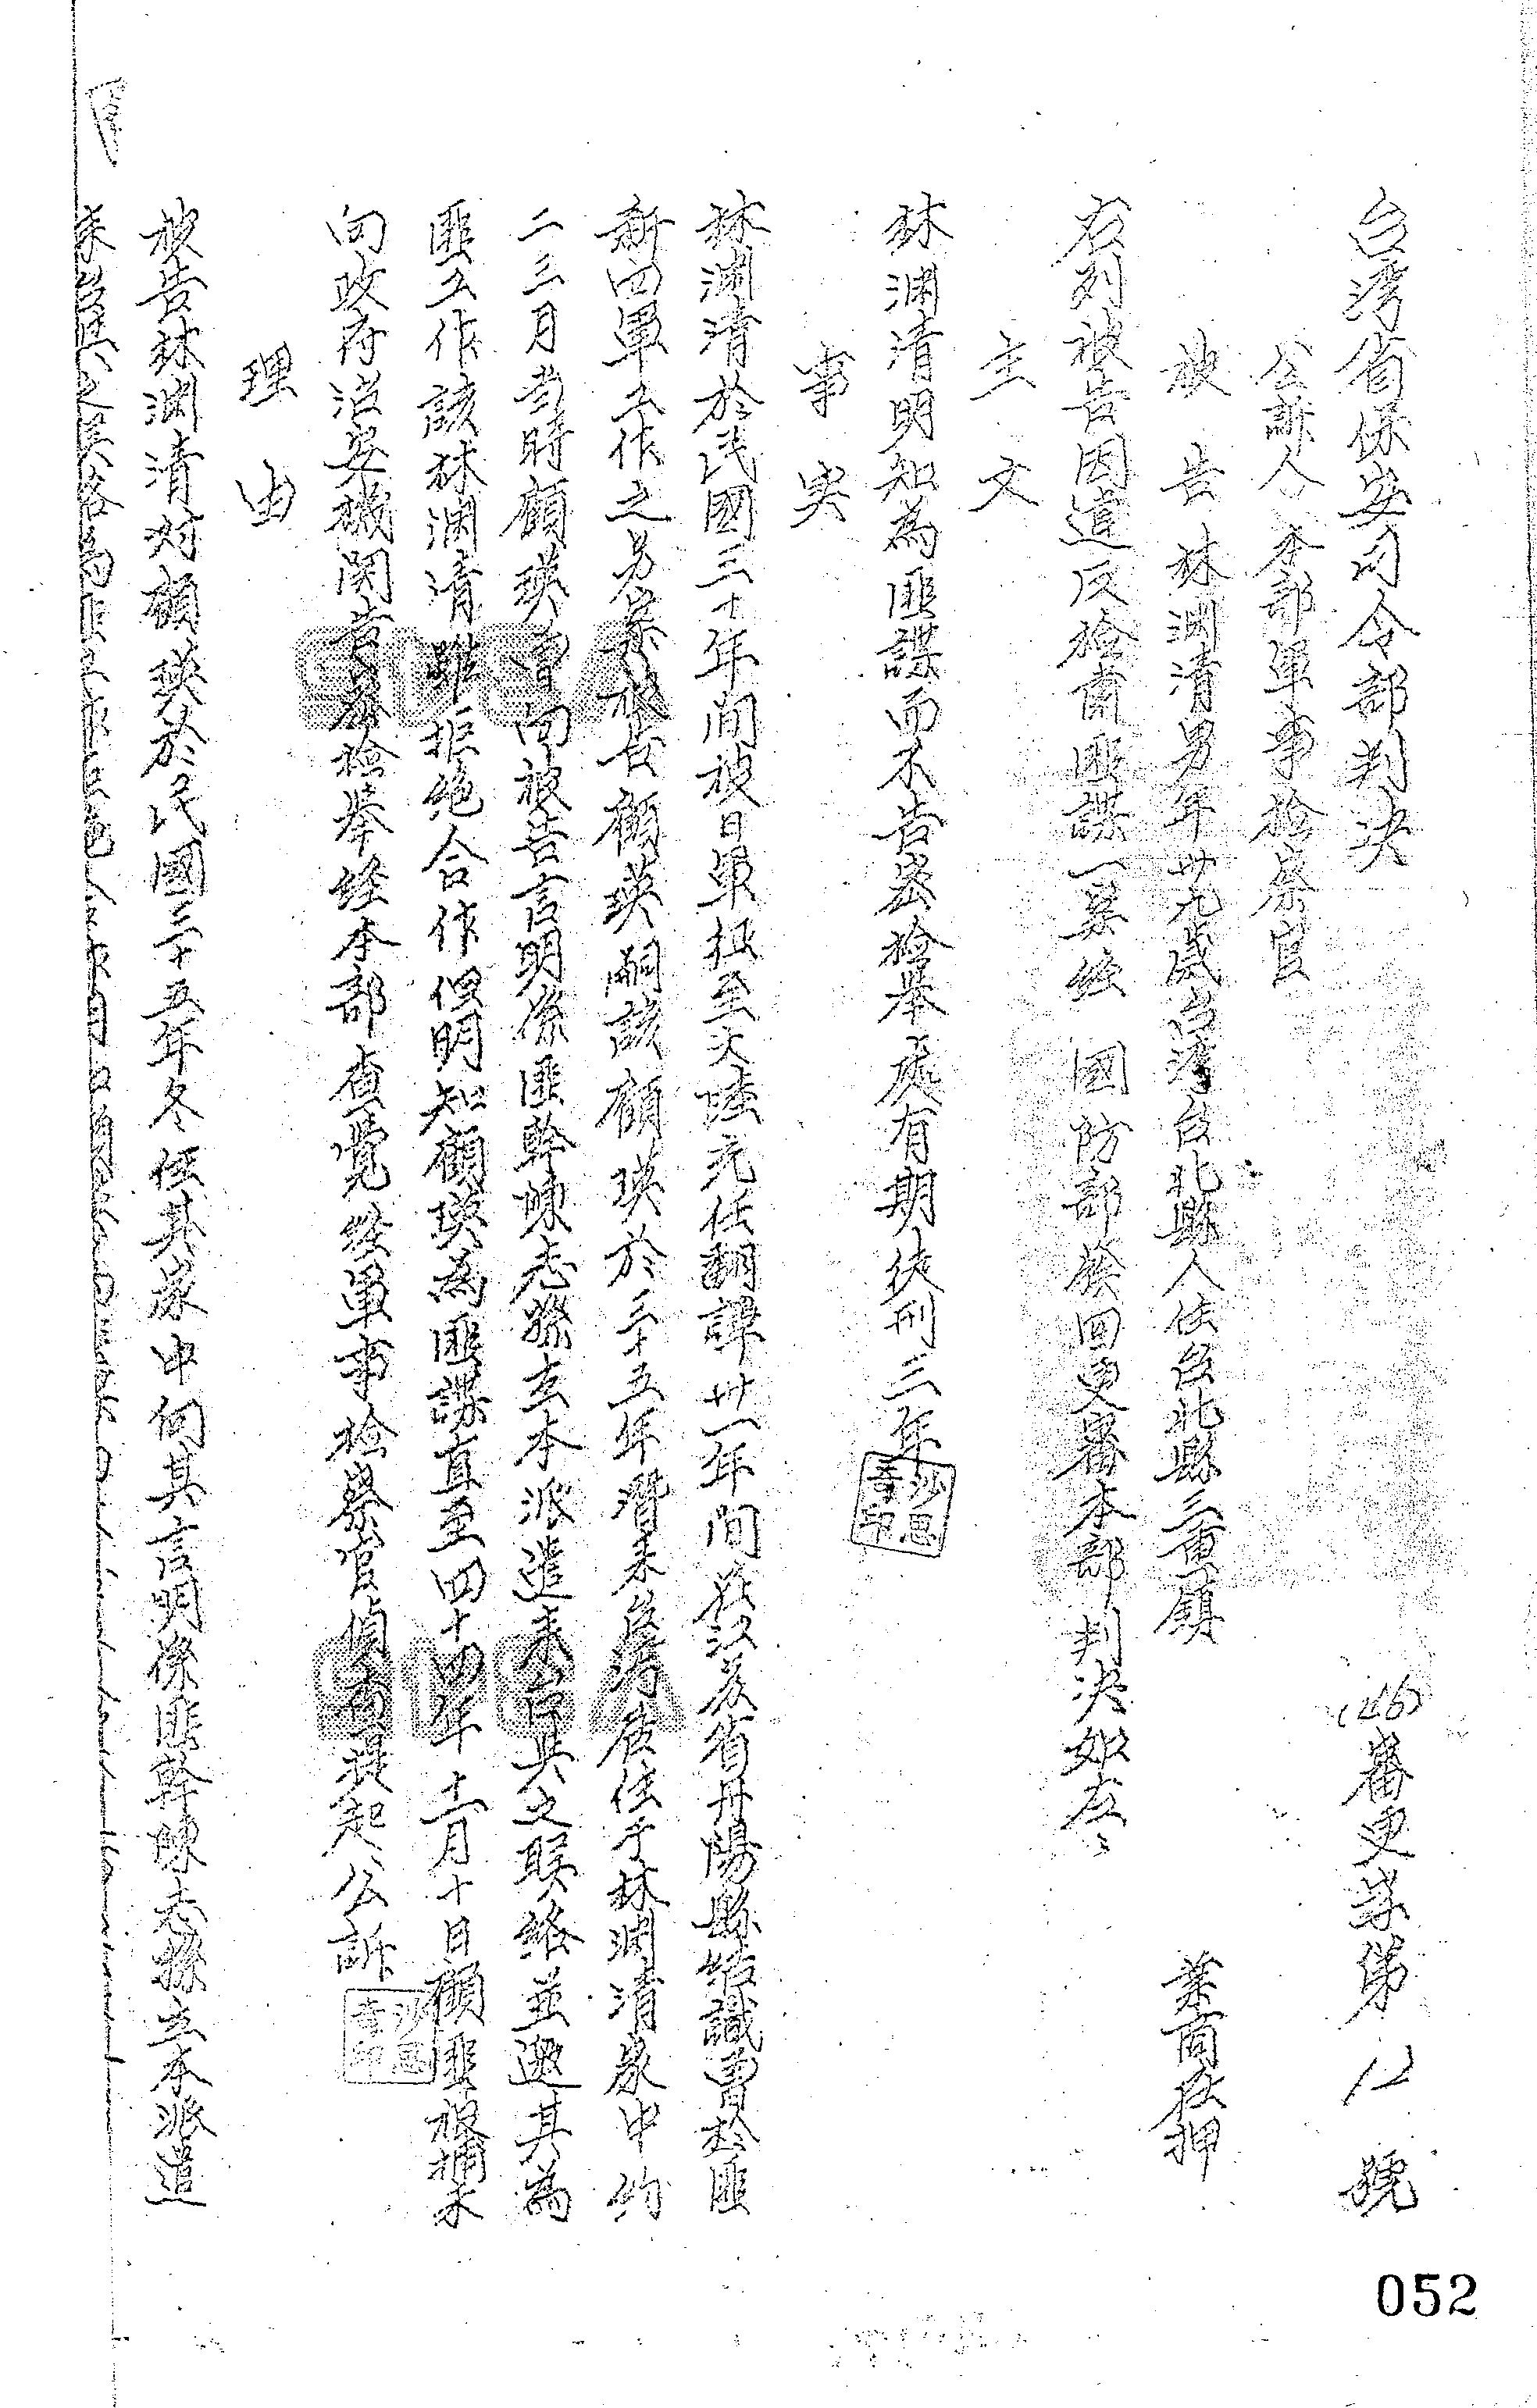 台湾省保安司令部判决
(46)審更字第12號
公訴人 本部軍事檢察官
被告 林渊清男年卅九歲台湾台北縣人住台北縣三重鎮 業商在押
右列被告因違反檢肅匪諜一案經 國防部發回更審本部判决如左:
主文
林渊清明知為匪諜而不告密檢舉處有期徒刑三年
事實
林渊清於民國三十年間被日軍征至大陸充任翻譯卅一年間在江蘇省丹陽縣結識曾於匪
新四軍工作之另案被告顧瑛嗣該顧瑛於三十五年潛來台湾居住于林渊清家中約
二三月當時顧瑛曾向被告言明係匪幹陳志 立本派遣來台與之联絡並邀其為
匪工作該林渊清雖拒絶合作但明知顧瑛為匪諜直至四十四年十二月十日顧匪被捕未
向政府治安機関告密檢舉經本部查覺經軍事檢察官偵查提起公訴
理由
被告林渊清对顧瑛於民國三十五年冬住其家中向其言明係匪幹陳志 立本派遣
來台與之联絡
沙恩奇印
沙恩奇印
052